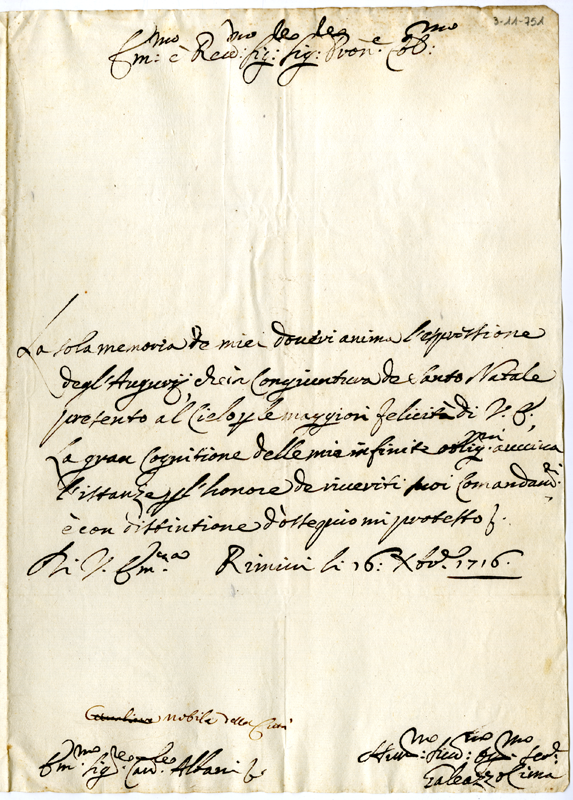 3-11-751
Em:mo è Reu:mo sig:re sig:re Pron:e Col:mo
La sola memoria de miei doueri anima l'espressione
degl'Augurij, che in Congiuntura de Santo Natale
presento al Cielo p le maggiori felicità di V. E.,
La gran Cognitione delle mie infinite oblig:ni auuiua
l'istanze p l'honore de riceuerti suoi Comandam:ti
è con distintione d'ossequio mi protesto
Di V. Em:za Rimini li 16: Xbre 1716.
nobile della Città
Em:mo sig:re Car:le Albani
Hum:mo Galeazzo Cima